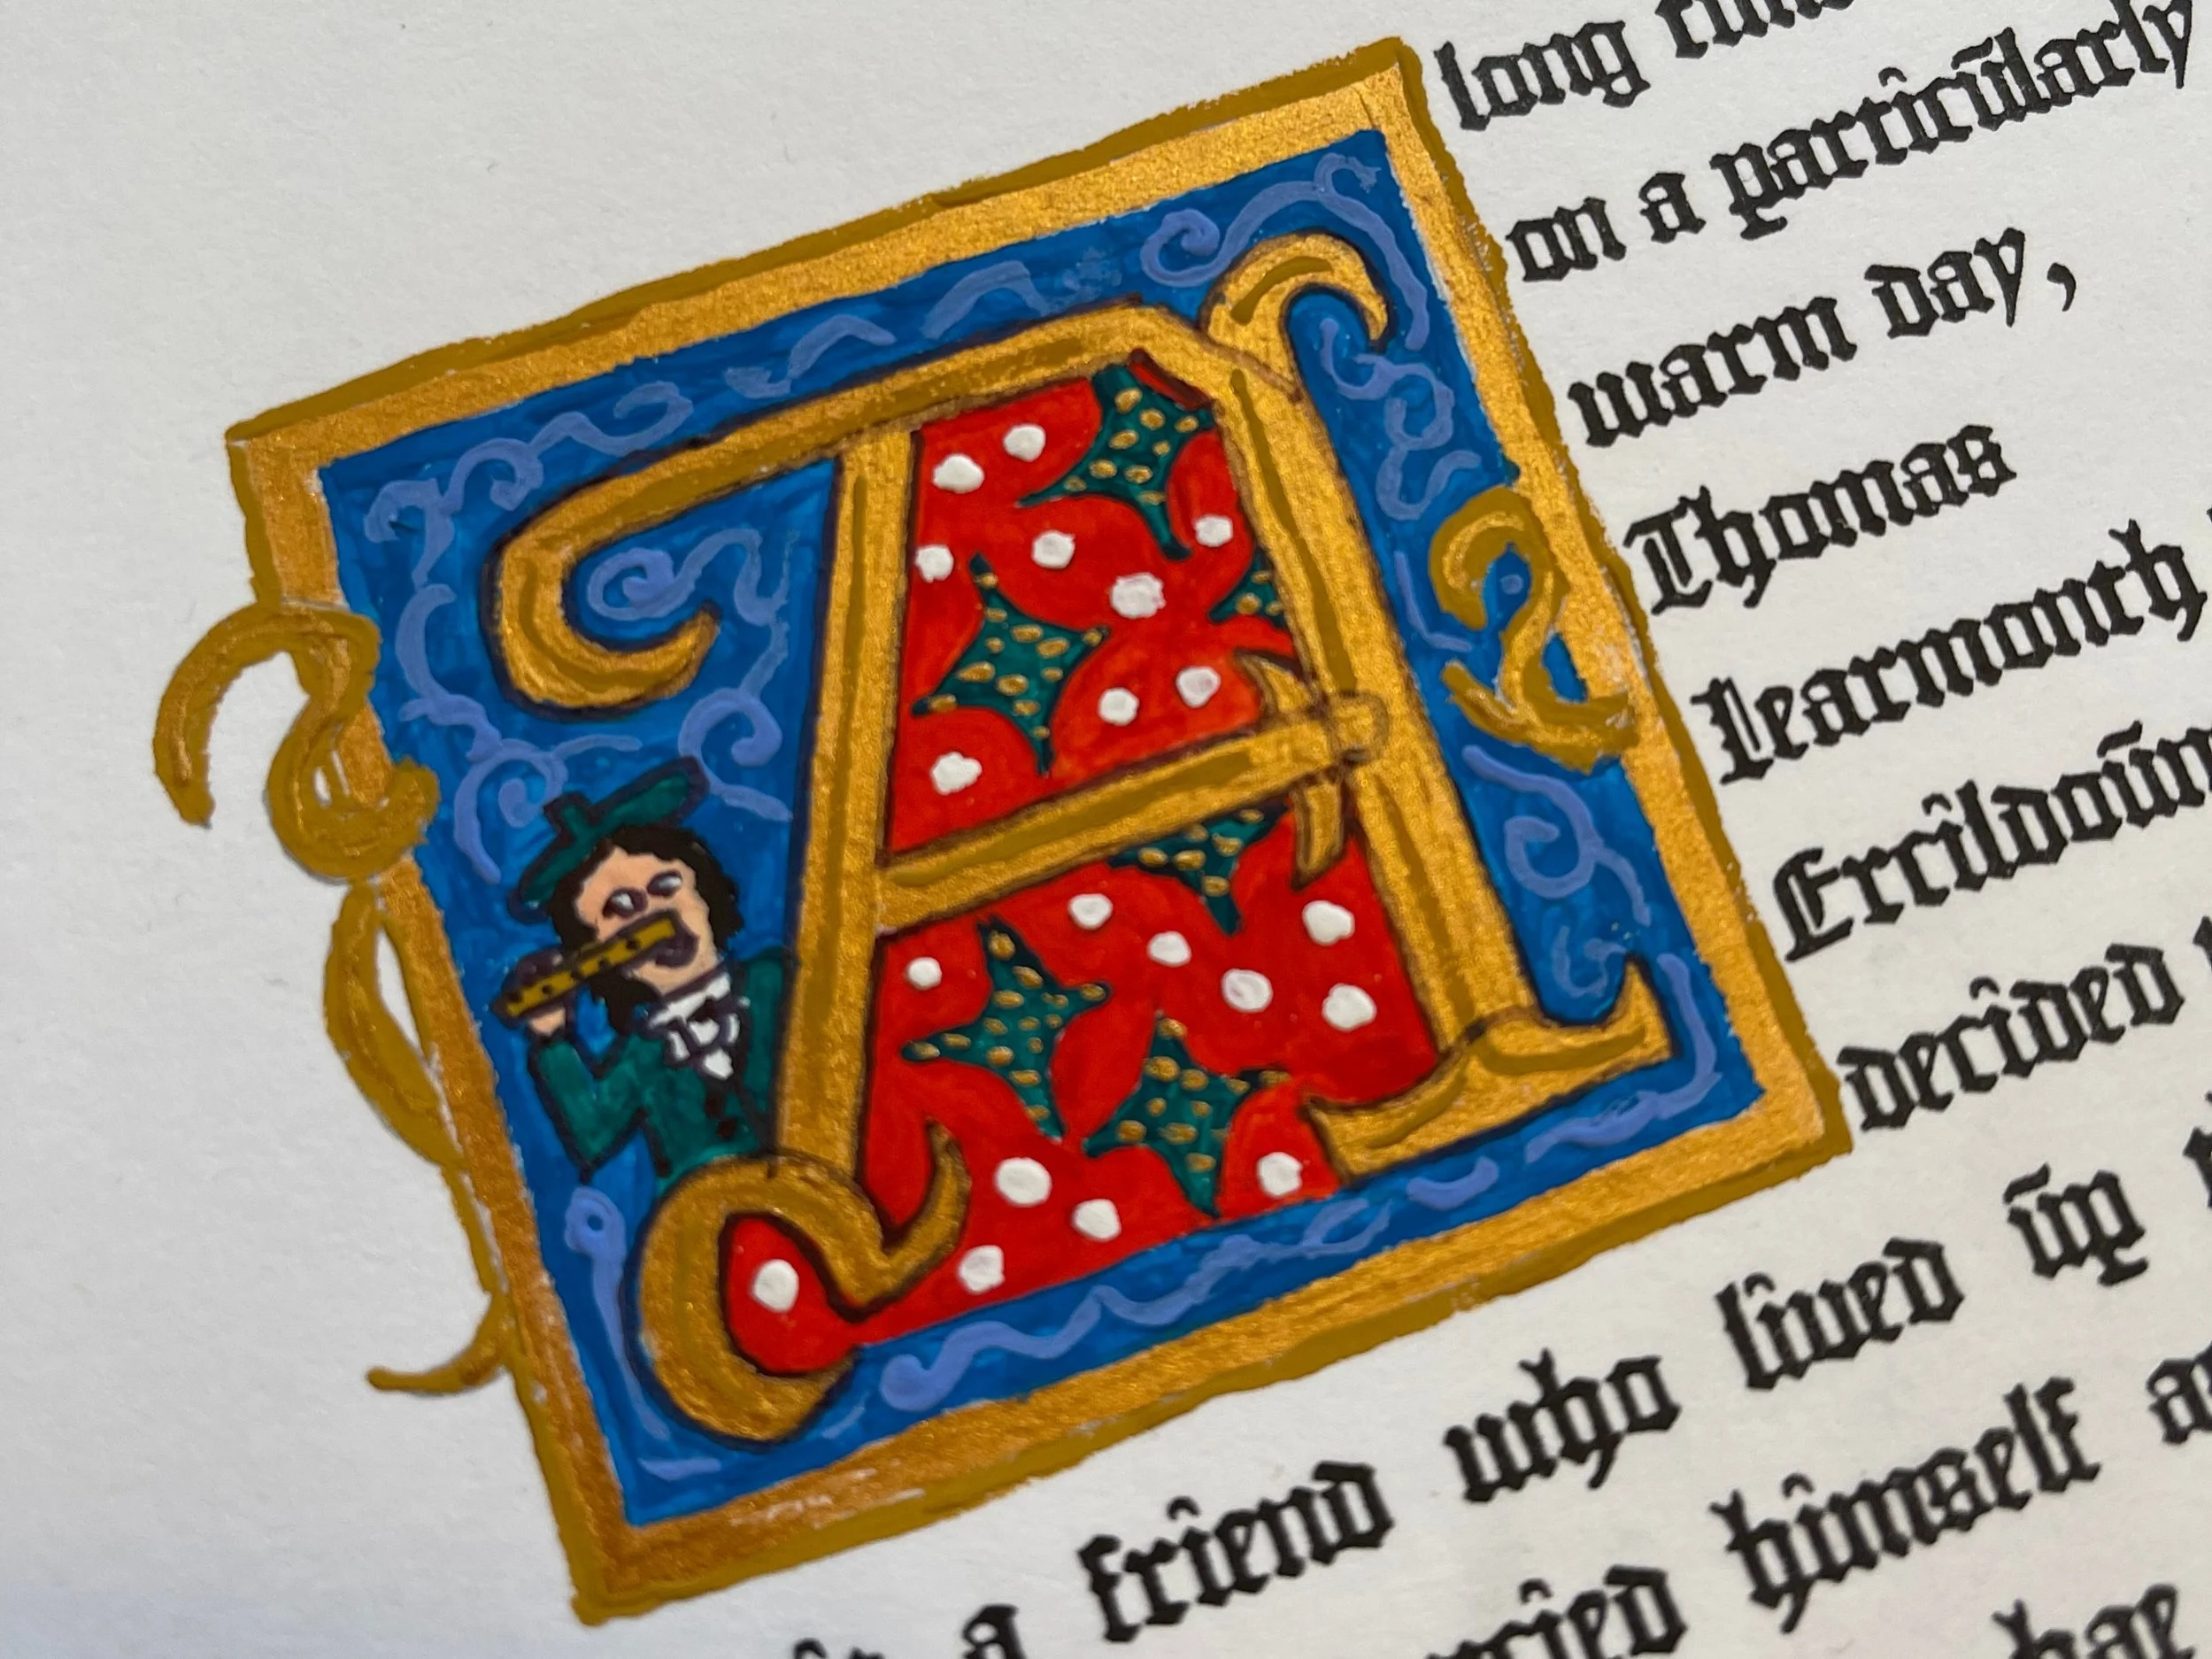 A
long
on a particularly
warm day,
Thomas
Learmonth
Ercildoun
decided
a friend who lived up
himself
hae